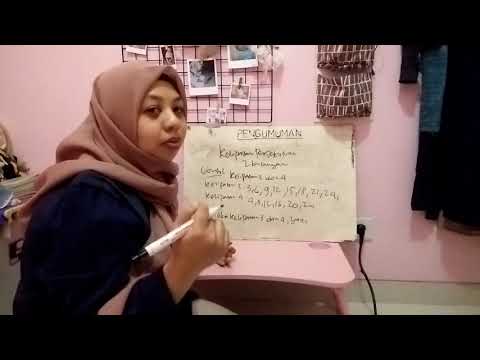 PENGUMUMAN
Kelipatan Persekutuan
2 bilangan
Contoh: Kelipatan 3 dan 4
Kelipatan 3: 3,6,9,12,15,18,21,24,
Kelipatan 4: 4,8,12,16,20,24
kelipatan 3 dan 4,